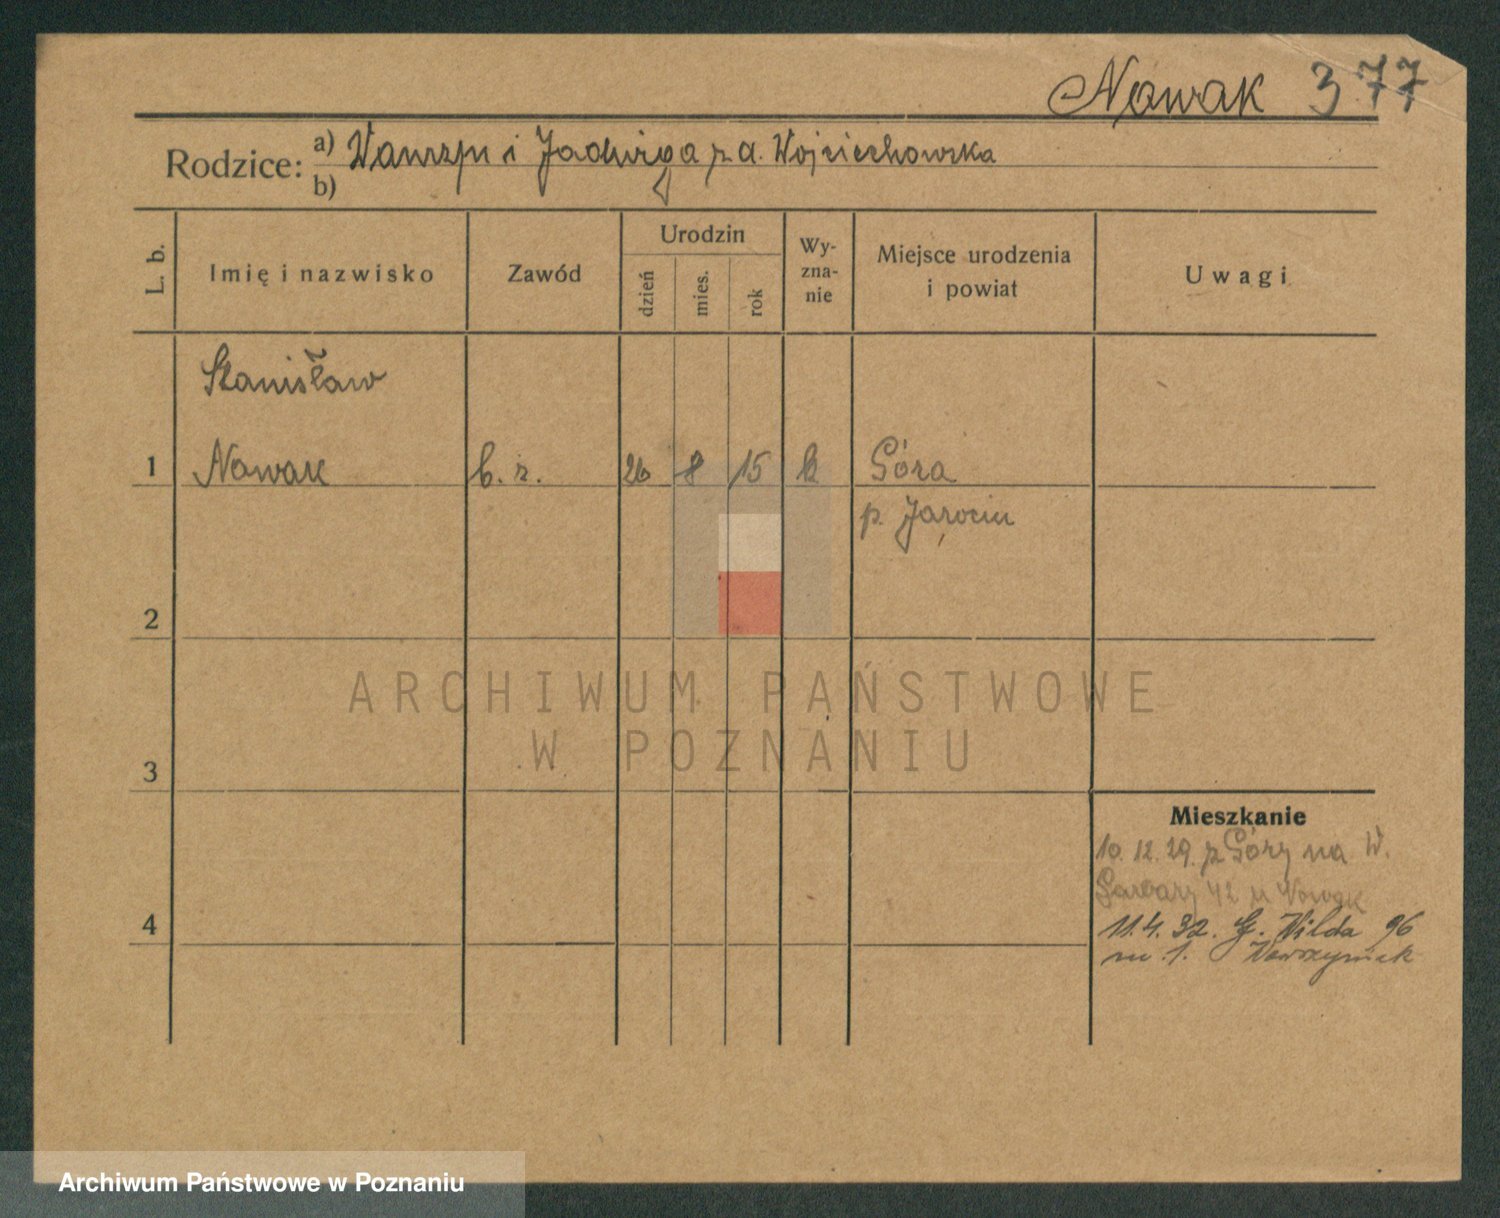 Nowak 377
Rodzice: a) Wawrzyn i Jadwiga z d. Wojciechowska
b)
L. b.
Imię i nazwisko
Zawód
Urodzin
dzień
mies.
rok
Wy-
zna-
nie
Miejsce urodzenia
i powiat
Uwagi
Stanisław
1 Nowak b. z. 26 8 15 k Góra
p. Jarocin
2
ARCHIWUM PAŃSTWOWE
W POZNANIU
3
Mieszkanie
10.12.29. z Góry na W.
Garbary 42 u Nowak
4
11.4.32. G. Wilda 96
m 1. Wawrzyniak
Archiwum Państwowe w Poznaniu